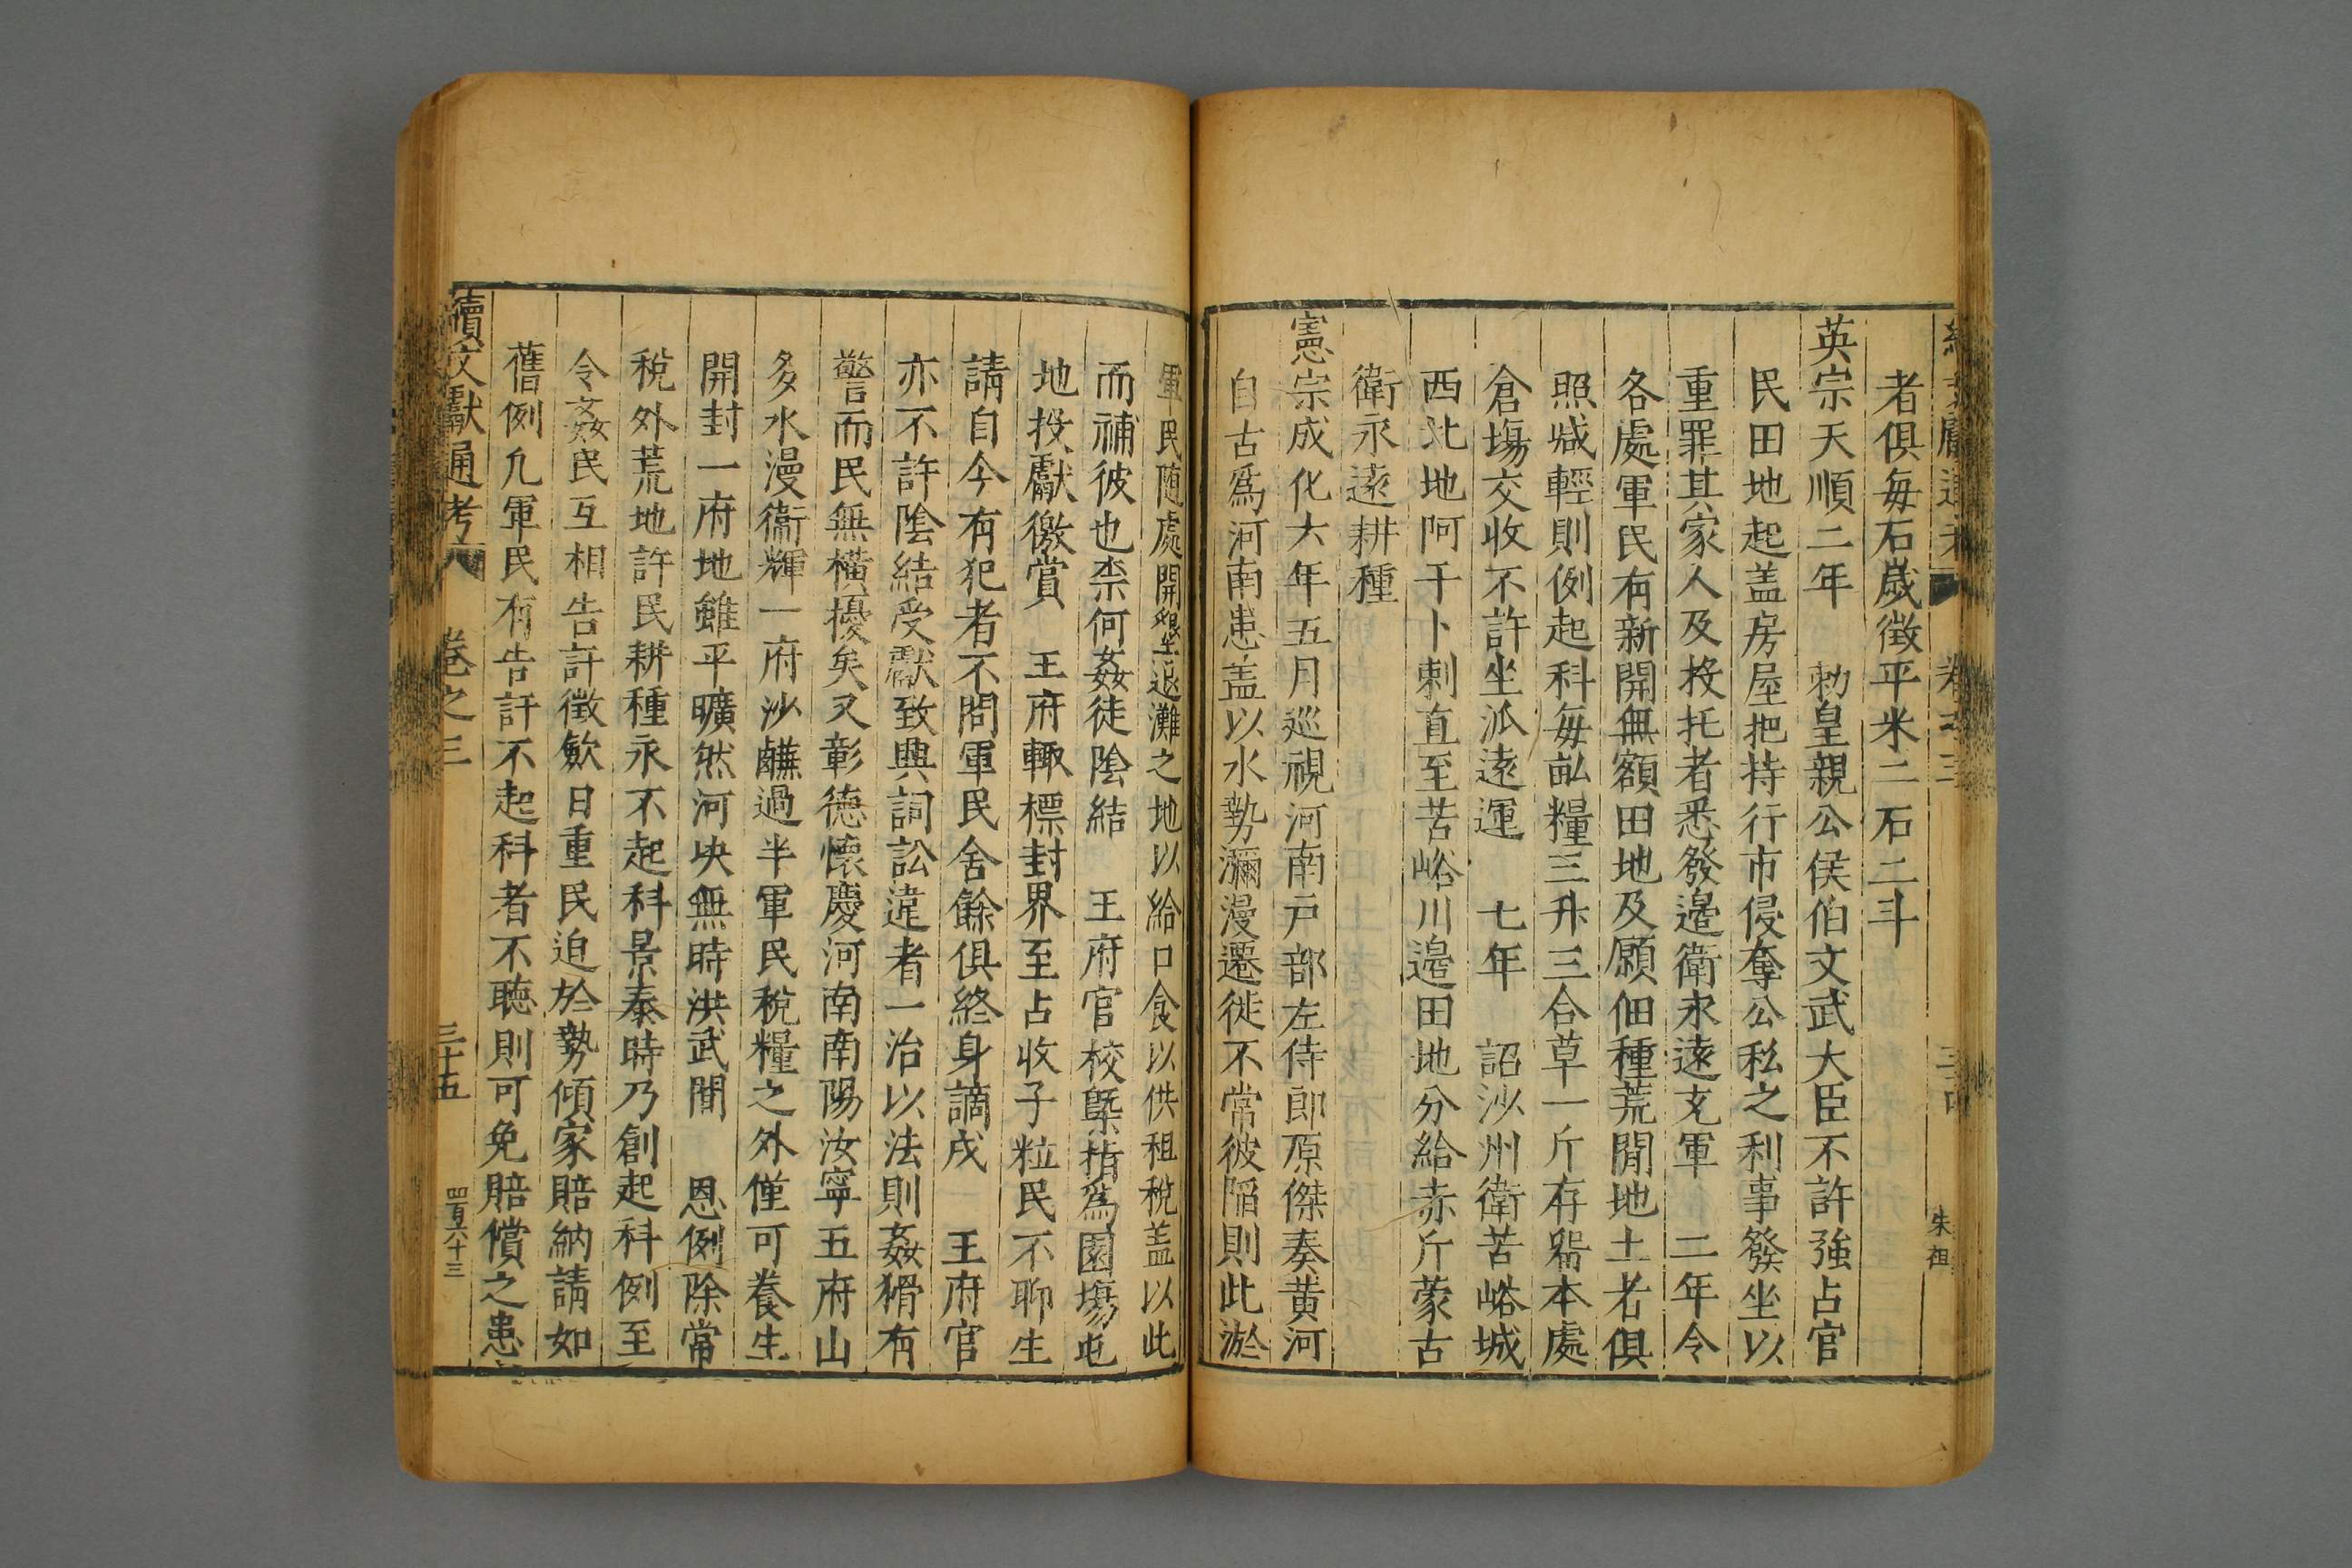 續文獻通考 卷之三 三十四 朱祖
者俱每石歲徵平米二石二斗
英宗天順二年 勑皇親公侯伯文武大臣不許強占官
民田地起盖房屋把持行市侵奪公私之利事發坐以
重罪其家人及投托者悉發邊衛永遠充軍 二年令
各處軍民有新開無額田地及願佃種荒閒地土者俱
照減輕則例起科每畆糧三升三合草一斤存畱本處
倉塲交收不許坐派遠運 七年 詔沙州衛苦峪城
西北地阿干卜剌直至苦峪川邊田地分給赤斤蒙古
衛永遠耕種
憲宗成化六年五月巡視河南戸部左侍郎原傑奏黄河
自古爲河南患盖以水勢瀰漫遷徙不常彼陷則此淤
軍民随處開墾退灘之地以給口食以供租稅盖以此
而補彼也柰何姦徒陰結 王府官校槩指爲園塲屯
地投獻徼賞 王府輙標封界至占收子粒民不聊生
請自今有犯者不問軍民舍餘俱終身謫戍 王府官
亦不許陰結受獻致興詞訟違者一治以法則姦猾有
警而民無橫擾矣又彰德懷慶河南南陽汝寧五府山
多水漫衛輝一府沙鹻過半軍民稅糧之外僅可養生
開封一府地雖平曠然河决無時洪武間 恩例除常
稅外荒地許民耕種永不起科景泰時乃創起科例至
令姦民互相告訐徵斂日重民迫於勢傾家賠納請如
舊例凢軍民有告訐不起科者不聴則可免賠償之患
續文獻通考 卷之三 三十五 四百六十三